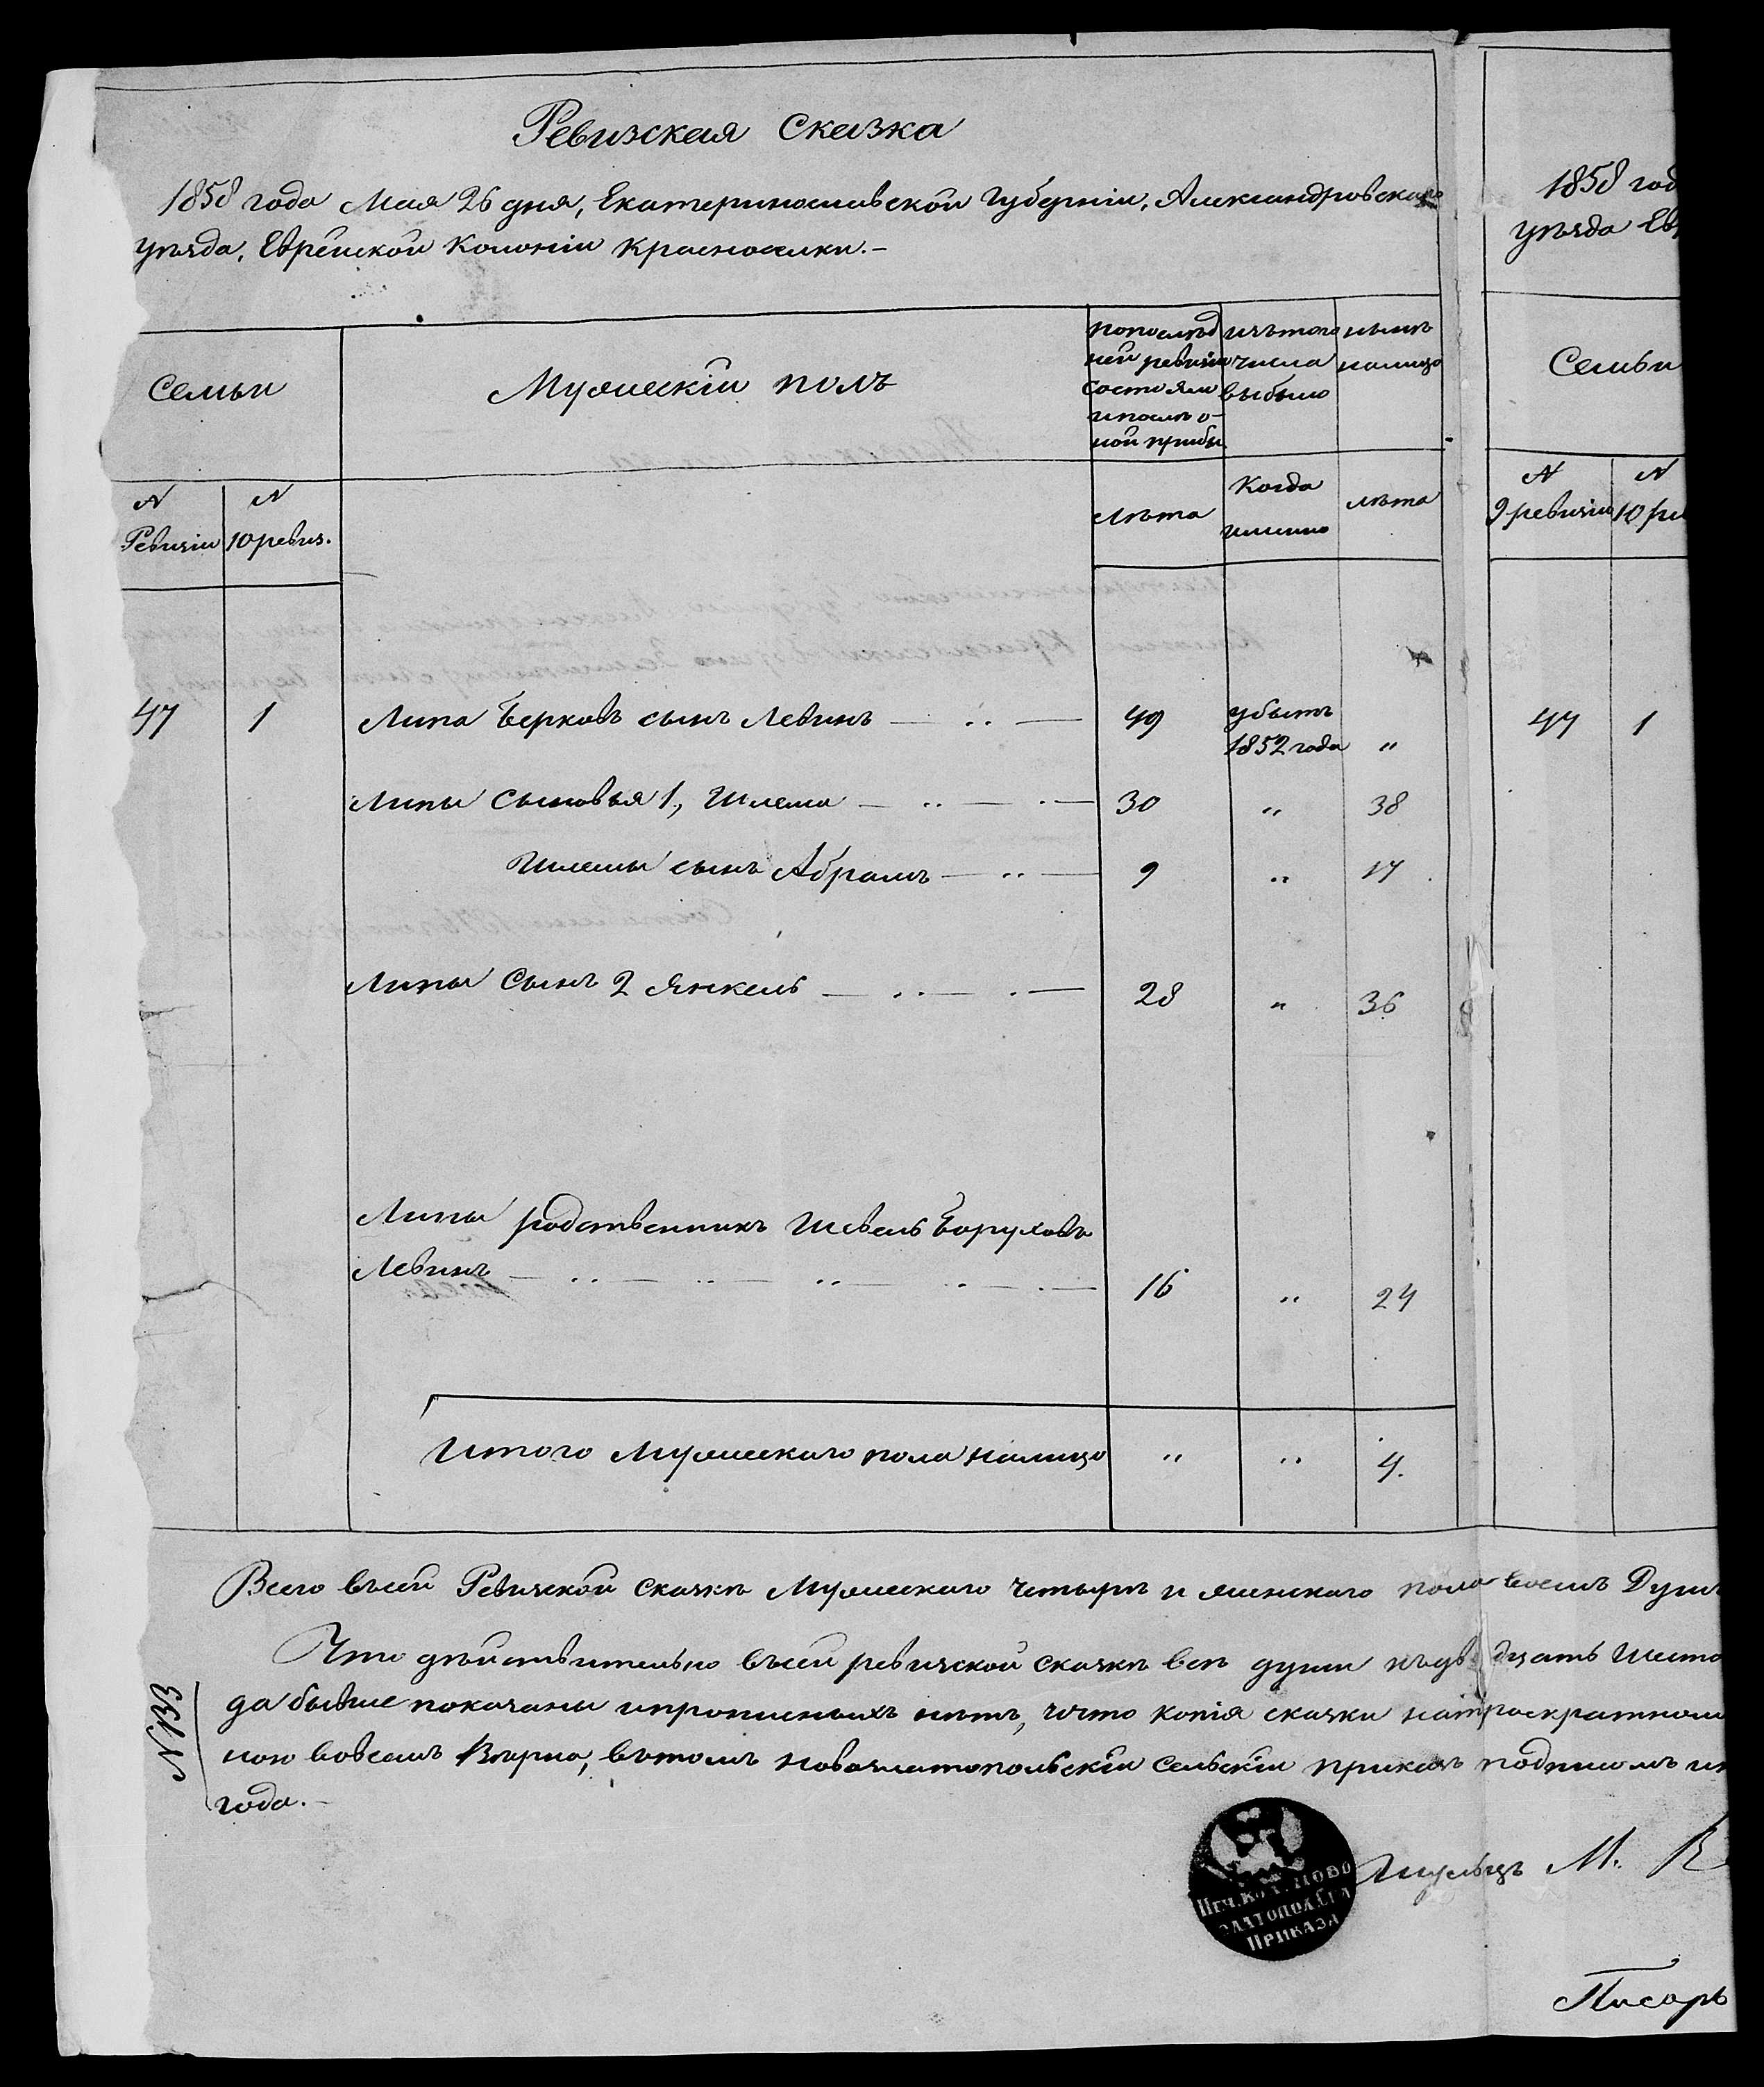 Ревизская Сказка
1858 года Мая 26 дня, Екатеринославской Губерніи, Александровскаго
уѣзда, Еврейской Колоніи Красноселки.-
1858 год
уѣзда Ев
Семьи
Мужескій полъ
попослѣд
ней ревизіи
состояло
ипослѣ о-
ной прибы.
изътого
числа
выбыло
нынѣ
налицо
Семьи
N
Ревизіи
N
10 ревиз.
лѣта
Когда
именно
лѣта
N
9 ревизіи
N
10 ре
47 1 Липа Берковъ сынъ Левинъ — .. — 49 убытъ
1852 года „
47 1
Липы сыновья 1., Шлема — .. — . — 30 „ 38
Шлемы сынъ Абрамъ — .. — 9 „ 17
Липы Сынъ 2 Янкель — .. — . — 28 „ 36
Липы родственникъ Шевель Боруховъ
Левинъ — .. — .. — .. — . — . — 16 „ 24
Итого Мужескаго пола налицо „ „ 4.
Всего въсей Ревизской Сказкѣ Мужескаго Четыре и женскаго пола восемь Душъ
Что дѣйствительно въсей ревизской сказкѣ всѣ души къдвадцать шесто
да бывше показаны ипрописныхъ нѣтъ, что копія сказки
ною вовсемъ Вѣрно, вътомъ Новозлатопольскій Сельскій приказъ подписомъ и
года.-
N 33
ПЕЧ. КОЛ. НОВО
ЗЛАТОПОЛ. СЕЛ
ПРИКАЗА
Шульцъ М. К
Писарь